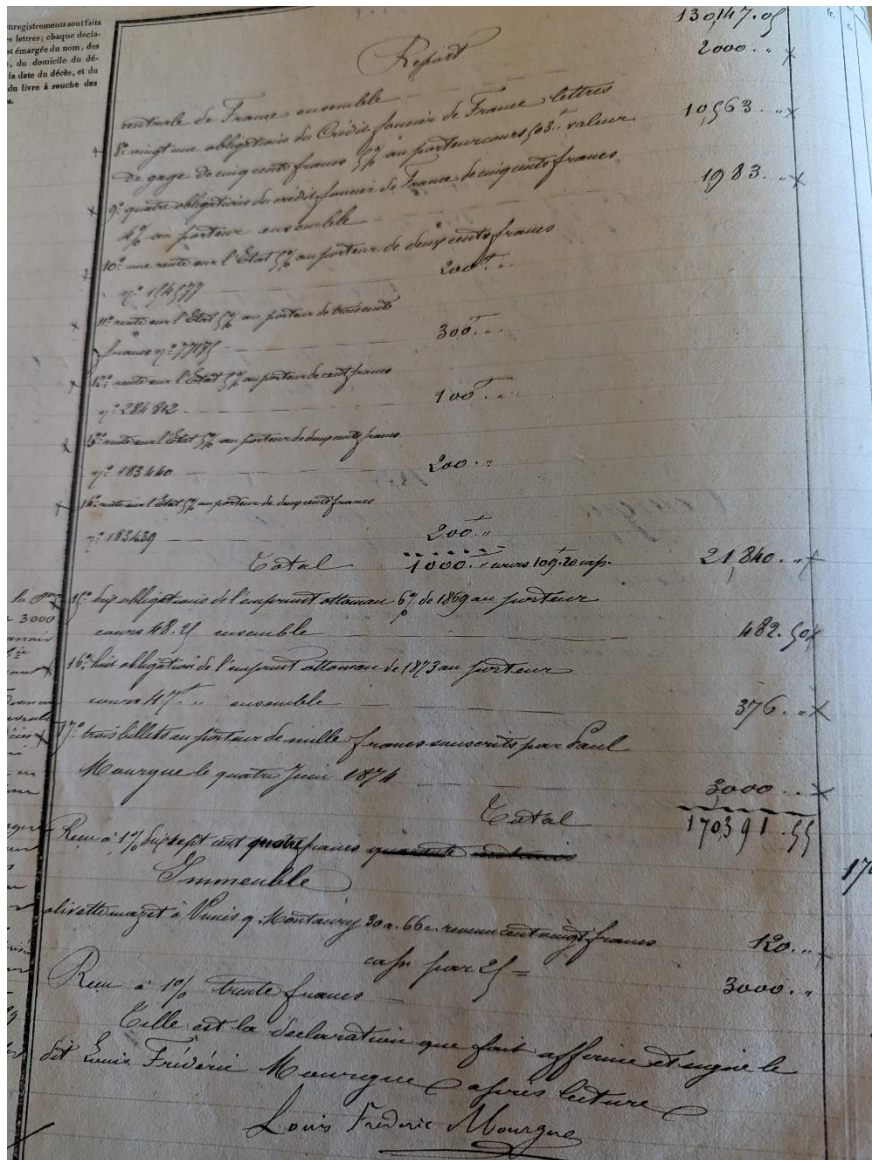 enregistrements sont faits
es lettres; chaque décla-
st émargée du nom, des
, du domicile du dé-
la date du décès, et du
du livre à souche des
s.
130,147.05
Report 2000. "
centrale de France ensemble
8° vingt une obligations du Crédit foncier de France lettres
de gage de cinq cents francs 5% au porteur cours 503 f valeur 10,563. "
9° quatre obligations du crédit foncier de France de cinq cents francs
4% au porteur ensemble 1,983. "
10° une rente sur l'Etat 5% au porteur de deux cents francs
n° 154577 200 f "
11° rente sur l'Etat 5% au porteur de trois cents
francs n° 77175 300 f "
12° rente sur l'Etat 5% au porteur de cent francs
n° 284812 100 f "
13° rente sur l'Etat 5% au porteur de deux cents francs
n° 183440 200. "
14° rente sur l'Etat 5% au porteur de deux cents francs
n° 183439 200 "
Total 1000. " cours 109 f. 20 cap. 21,840. "
15° dix obligations de l'emprunt ottoman 6% de 1869 au porteur
cours 48.25 ensemble 482.50
16° huit obligations de l'emprunt ottoman de 1873 au porteur
cours 47 f " ensemble 376. "
17° trois billets au porteur de mille francs souscrits par Paul
Mourgue le quatre Juin 1874 3000. "
Total 170391.55
Reçu à 1% dix sept cent quatre francs quarante centimes
Immeuble
olivette mazet à Nimes q. Montaury 30 a. 66 c. revenu cent vingt francs 120. "
cap. par 25 = 3000. "
Reçu à 1% trente francs
Telle est la déclaration que fait affirme et signe le
dit Louis Frédéric Mourgue après lecture
Louis Frédéric Mourgue
3000
170